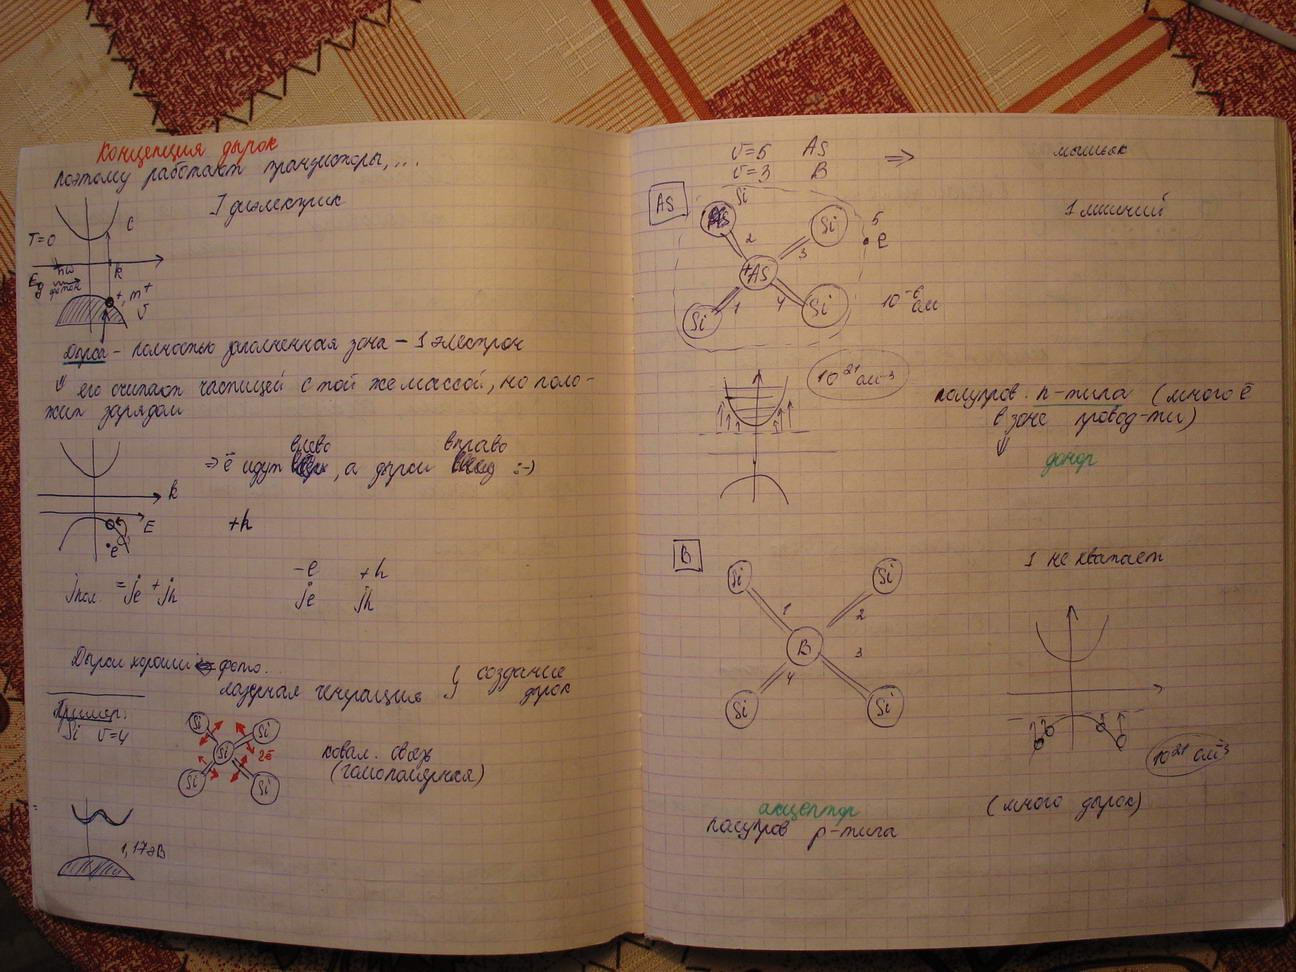 Концепция дырок
Поэтому работают транзисторы, ...
I диэлектрик
C
T=0
k
Eg
ħω
фотон
+, m+
v
Дырка - полностью заполненная зона - 1 электрон
⇓ его считают частицей с той же массой, но поло-
жит зарядом
влево вправо
⇒ ē идут , а дырки :-)
k
E
e
+h
-e +h
jпол. = je + jh
je jh
Дырки хороши ⇐ фото...
лазерная генерация
создание
дырок
Пример:
Si v=4
Si
Si
Si
2ē
Si
Si
ковал. связь
(гомополярная)
1,17эВ
v=5 As ⇒ мышьяк
v=3 B
As
Si
Si
5
1 лишний
e
2
3
+As
Si
1
4
Si
10⁻⁶ см
10²¹ см⁻³
полупров. n-типа (много ē
в зоне провод-ти)
⇓
донор
B
1 не хватает
Si
Si
1
2
B
3
4
Si
Si
10²¹ см⁻³
акцептор
(много дырок)
полупров p-типа